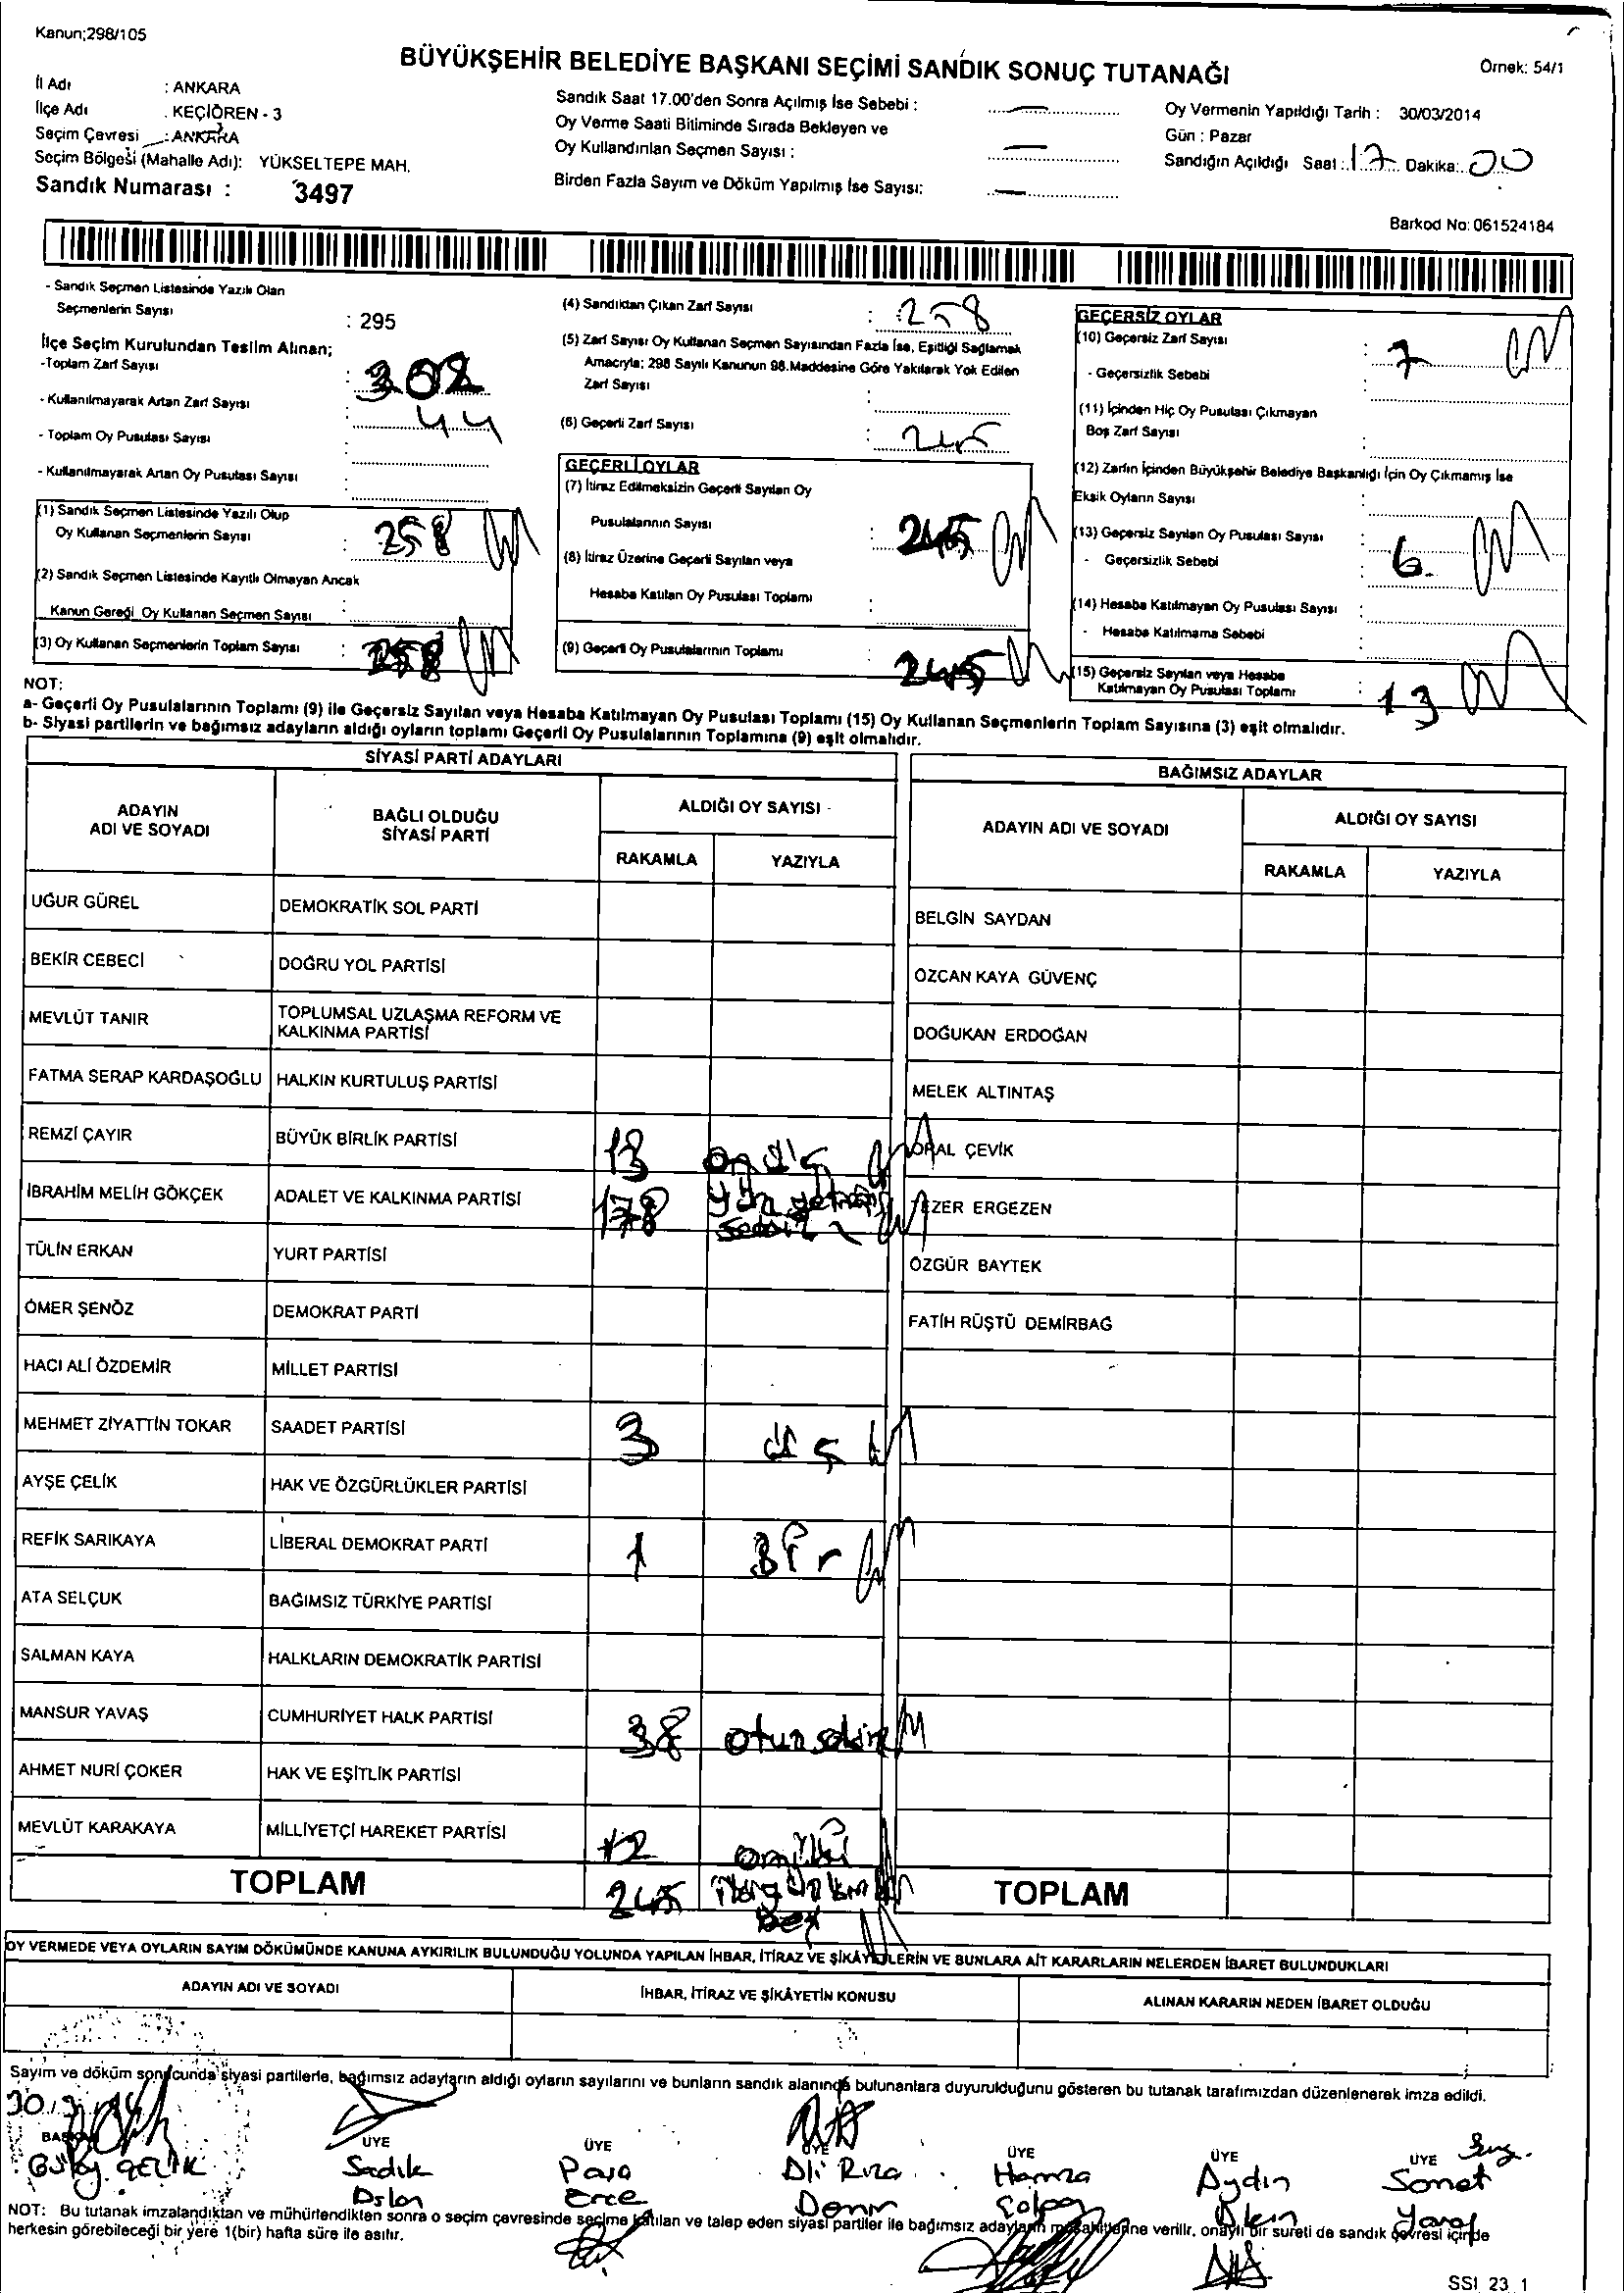 Kanun;298/105
BÜYÜKŞEHİR BELEDİYE BAŞKANI SEÇİMİ SANDIK SONUÇ TUTANAĞI
Örnek: 54/1
İl Adı : ANKARA
İlçe Adı : KEÇİÖREN - 3
Seçim Çevresi : ANKARA
Seçim Bölgesi (Mahalle Adı): YÜKSELTEPE MAH.
Sandık Numarası : 3497
Sandık Saat 17.00'den Sonra Açılmış İse Sebebi :
Oy Verme Saati Bitiminde Sırada Bekleyen ve
Oy Kullandırılan Seçmen Sayısı :
Birden Fazla Sayım ve Döküm Yapılmış İse Sayısı:
Oy Vermenin Yapıldığı Tarih : 30/03/2014
Gün : Pazar
Sandığın Açıldığı Saat : 17 Dakika: 00
Barkod No: 061524184
- Sandık Seçmen Listesinde Yazılı Olan
Seçmenlerin Sayısı : 295
İlçe Seçim Kurulundan Teslim Alınan;
-Toplam Zarf Sayısı : 302
- Kullanılmayarak Artan Zarf Sayısı : 44
- Toplam Oy Pusulası Sayısı :
- Kullanılmayarak Artan Oy Pusulası Sayısı :
(1) Sandık Seçmen Listesinde Yazılı Olup
Oy Kullanan Seçmenlerin Sayısı : 258
(2) Sandık Seçmen Listesinde Kayıtlı Olmayan Ancak
Kanun Gereği Oy Kullanan Seçmen Sayısı :
(3) Oy Kullanan Seçmenlerin Toplam Sayısı : 258
(4) Sandıktan Çıkan Zarf Sayısı : 258
(5) Zarf Sayısı Oy Kullanan Seçmen Sayısından Fazla İse, Eşitliği Sağlamak
Amacıyla; 298 Sayılı Kanunun 98.Maddesine Göre Yakılarak Yok Edilen
Zarf Sayısı :
(6) Geçerli Zarf Sayısı : 245
GEÇERLİ OYLAR
(7) İtiraz Edilmeksizin Geçerli Sayılan Oy
Pusulalarının Sayısı : 245
(8) İtiraz Üzerine Geçerli Sayılan veya
Hesaba Katılan Oy Pusulası Toplamı :
(9) Geçerli Oy Pusulalarının Toplamı : 245
GEÇERSİZ OYLAR
(10) Geçersiz Zarf Sayısı : 7
- Geçersizlik Sebebi
(11) İçinden Hiç Oy Pusulası Çıkmayan
Boş Zarf Sayısı :
(12) Zarfın İçinden Büyükşehir Belediye Başkanlığı İçin Oy Çıkmamış İse
Eksik Oyların Sayısı :
(13) Geçersiz Sayılan Oy Pusulası Sayısı : 6
- Geçersizlik Sebebi
(14) Hesaba Katılmayan Oy Pusulası Sayısı :
- Hesaba Katılmama Sebebi
(15) Geçersiz Sayılan veya Hesaba
Katılmayan Oy Pusulası Toplamı : 13
NOT:
a- Geçerli Oy Pusulalarının Toplamı (9) ile Geçersiz Sayılan veya Hesaba Katılmayan Oy Pusulası Toplamı (15) Oy Kullanan Seçmenlerin Toplam Sayısına (3) eşit olmalıdır.
b- Siyasi partilerin ve bağımsız adayların aldığı oyların toplamı Geçerli Oy Pusulalarının Toplamına (9) eşit olmalıdır.
SİYASİ PARTİ ADAYLARI
ADAYIN ADI VE SOYADI
BAĞLI OLDUĞU SİYASİ PARTİ
ALDIĞI OY SAYISI
RAKAMLA YAZIYLA
UĞUR GÜREL DEMOKRATİK SOL PARTİ
BEKİR CEBECİ DOĞRU YOL PARTİSİ
MEVLÜT TANIR TOPLUMSAL UZLAŞMA REFORM VE KALKINMA PARTİSİ
FATMA SERAP KARDAŞOĞLU HALKIN KURTULUŞ PARTİSİ
REMZİ ÇAYIR BÜYÜK BİRLİK PARTİSİ 13 on üç
İBRAHİM MELİH GÖKÇEK ADALET VE KALKINMA PARTİSİ 178
TÜLİN ERKAN YURT PARTİSİ
ÖMER ŞENÖZ DEMOKRAT PARTİ
HACI ALİ ÖZDEMİR MİLLET PARTİSİ
MEHMET ZİYATTİN TOKAR SAADET PARTİSİ 3 üç
AYŞE ÇELİK HAK VE ÖZGÜRLÜKLER PARTİSİ
REFİK SARIKAYA LİBERAL DEMOKRAT PARTİ 1 Bir
ATA SELÇUK BAĞIMSIZ TÜRKİYE PARTİSİ
SALMAN KAYA HALKLARIN DEMOKRATİK PARTİSİ
MANSUR YAVAŞ CUMHURİYET HALK PARTİSİ 38
AHMET NURİ ÇOKER HAK VE EŞİTLİK PARTİSİ
MEVLÜT KARAKAYA MİLLİYETÇİ HAREKET PARTİSİ 12 oniki
TOPLAM 245
BAĞIMSIZ ADAYLAR
ADAYIN ADI VE SOYADI
ALDIĞI OY SAYISI
RAKAMLA YAZIYLA
BELGİN SAYDAN
ÖZCAN KAYA GÜVENÇ
DOĞUKAN ERDOĞAN
MELEK ALTINTAŞ
ORAL ÇEVİK
EZER ERGEZEN
ÖZGÜR BAYTEK
FATİH RÜŞTÜ DEMİRBAĞ
TOPLAM
OY VERMEDE VEYA OYLARIN SAYIM DÖKÜMÜNDE KANUNA AYKIRILIK BULUNDUĞU YOLUNDA YAPILAN İHBAR, İTİRAZ VE ŞİKÂYETLERİN VE BUNLARA AİT KARARLARIN NELERDEN İBARET BULUNDUKLARI
ADAYIN ADI VE SOYADI
İHBAR, İTİRAZ VE ŞİKÂYETİN KONUSU
ALINAN KARARIN NEDEN İBARET OLDUĞU
Sayım ve döküm sonucunda siyasi partilerle, bağımsız adayların aldığı oyların sayılarını ve bunların sandık alanında bulunanlara duyurulduğunu gösteren bu tutanak tarafımızdan düzenlenerek imza edildi.
BAŞKAN ÜYE ÜYE ÜYE ÜYE ÜYE ÜYE
ÇELİK Sadık Ali Rıza Hamza Aydın Samet
Aslan Erce
NOT: Bu tutanak imzalandıktan ve mühürlendikten sonra o seçim çevresinde seçime katılan ve talep eden siyasi partiler ile bağımsız adayların müşahitlerine verilir, onaylı bir sureti de sandık çevresi içinde
herkesin görebileceği bir yere 1(bir) hafta süre ile asılır.
SSI 23 1